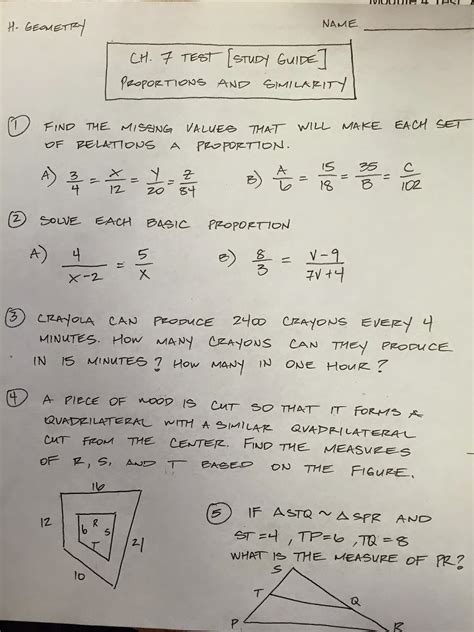 H. GEOMETRY
NAME
CH. 7 TEST [STUDY GUIDE]
PROPORTIONS AND SIMILARITY
① FIND THE MISSING VALUES THAT WILL MAKE EACH SET
OF RELATIONS A PROPORTION.
A) 3/4 = X/12 = Y/20 = Z/84 B) A/6 = 15/18 = 35/B = C/102
② SOLVE EACH BASIC PROPORTION
A) 4/(x-2) = 5/x B) 8/3 = (v-9)/(7v+4)
③ CRAYOLA CAN PRODUCE 2400 CRAYONS EVERY 4
MINUTES. HOW MANY CRAYONS CAN THEY PRODUCE
IN 15 MINUTES? HOW MANY IN ONE HOUR?
④ A PIECE OF WOOD IS CUT SO THAT IT FORMS A
QUADRILATERAL WITH A SIMILAR QUADRILATERAL
CUT FROM THE CENTER. FIND THE MEASURES
OF R, S, AND T BASED ON THE FIGURE.
16
12
6 R S
T
21
10
⑤ IF △STQ ~ △SPR AND
ST=4, TP=6, TQ=8
WHAT IS THE MEASURE OF PR?
S
T
Q
P
R